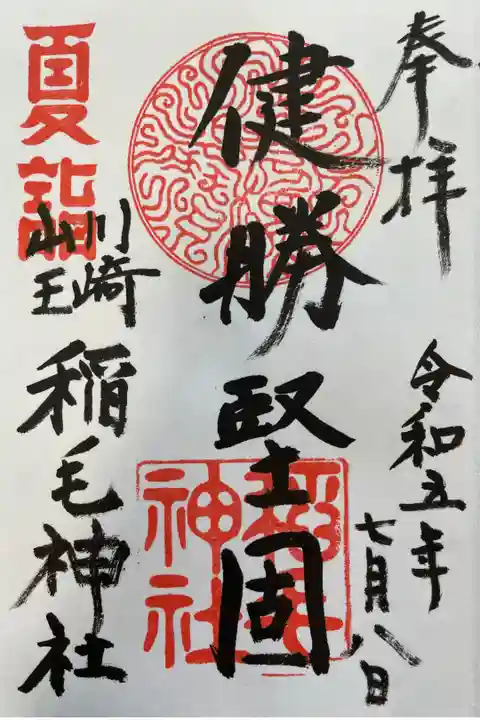 奉拝
令和五年
七月八日
健勝堅固
夏詣
川崎
山王
稲毛神社
稲毛神社